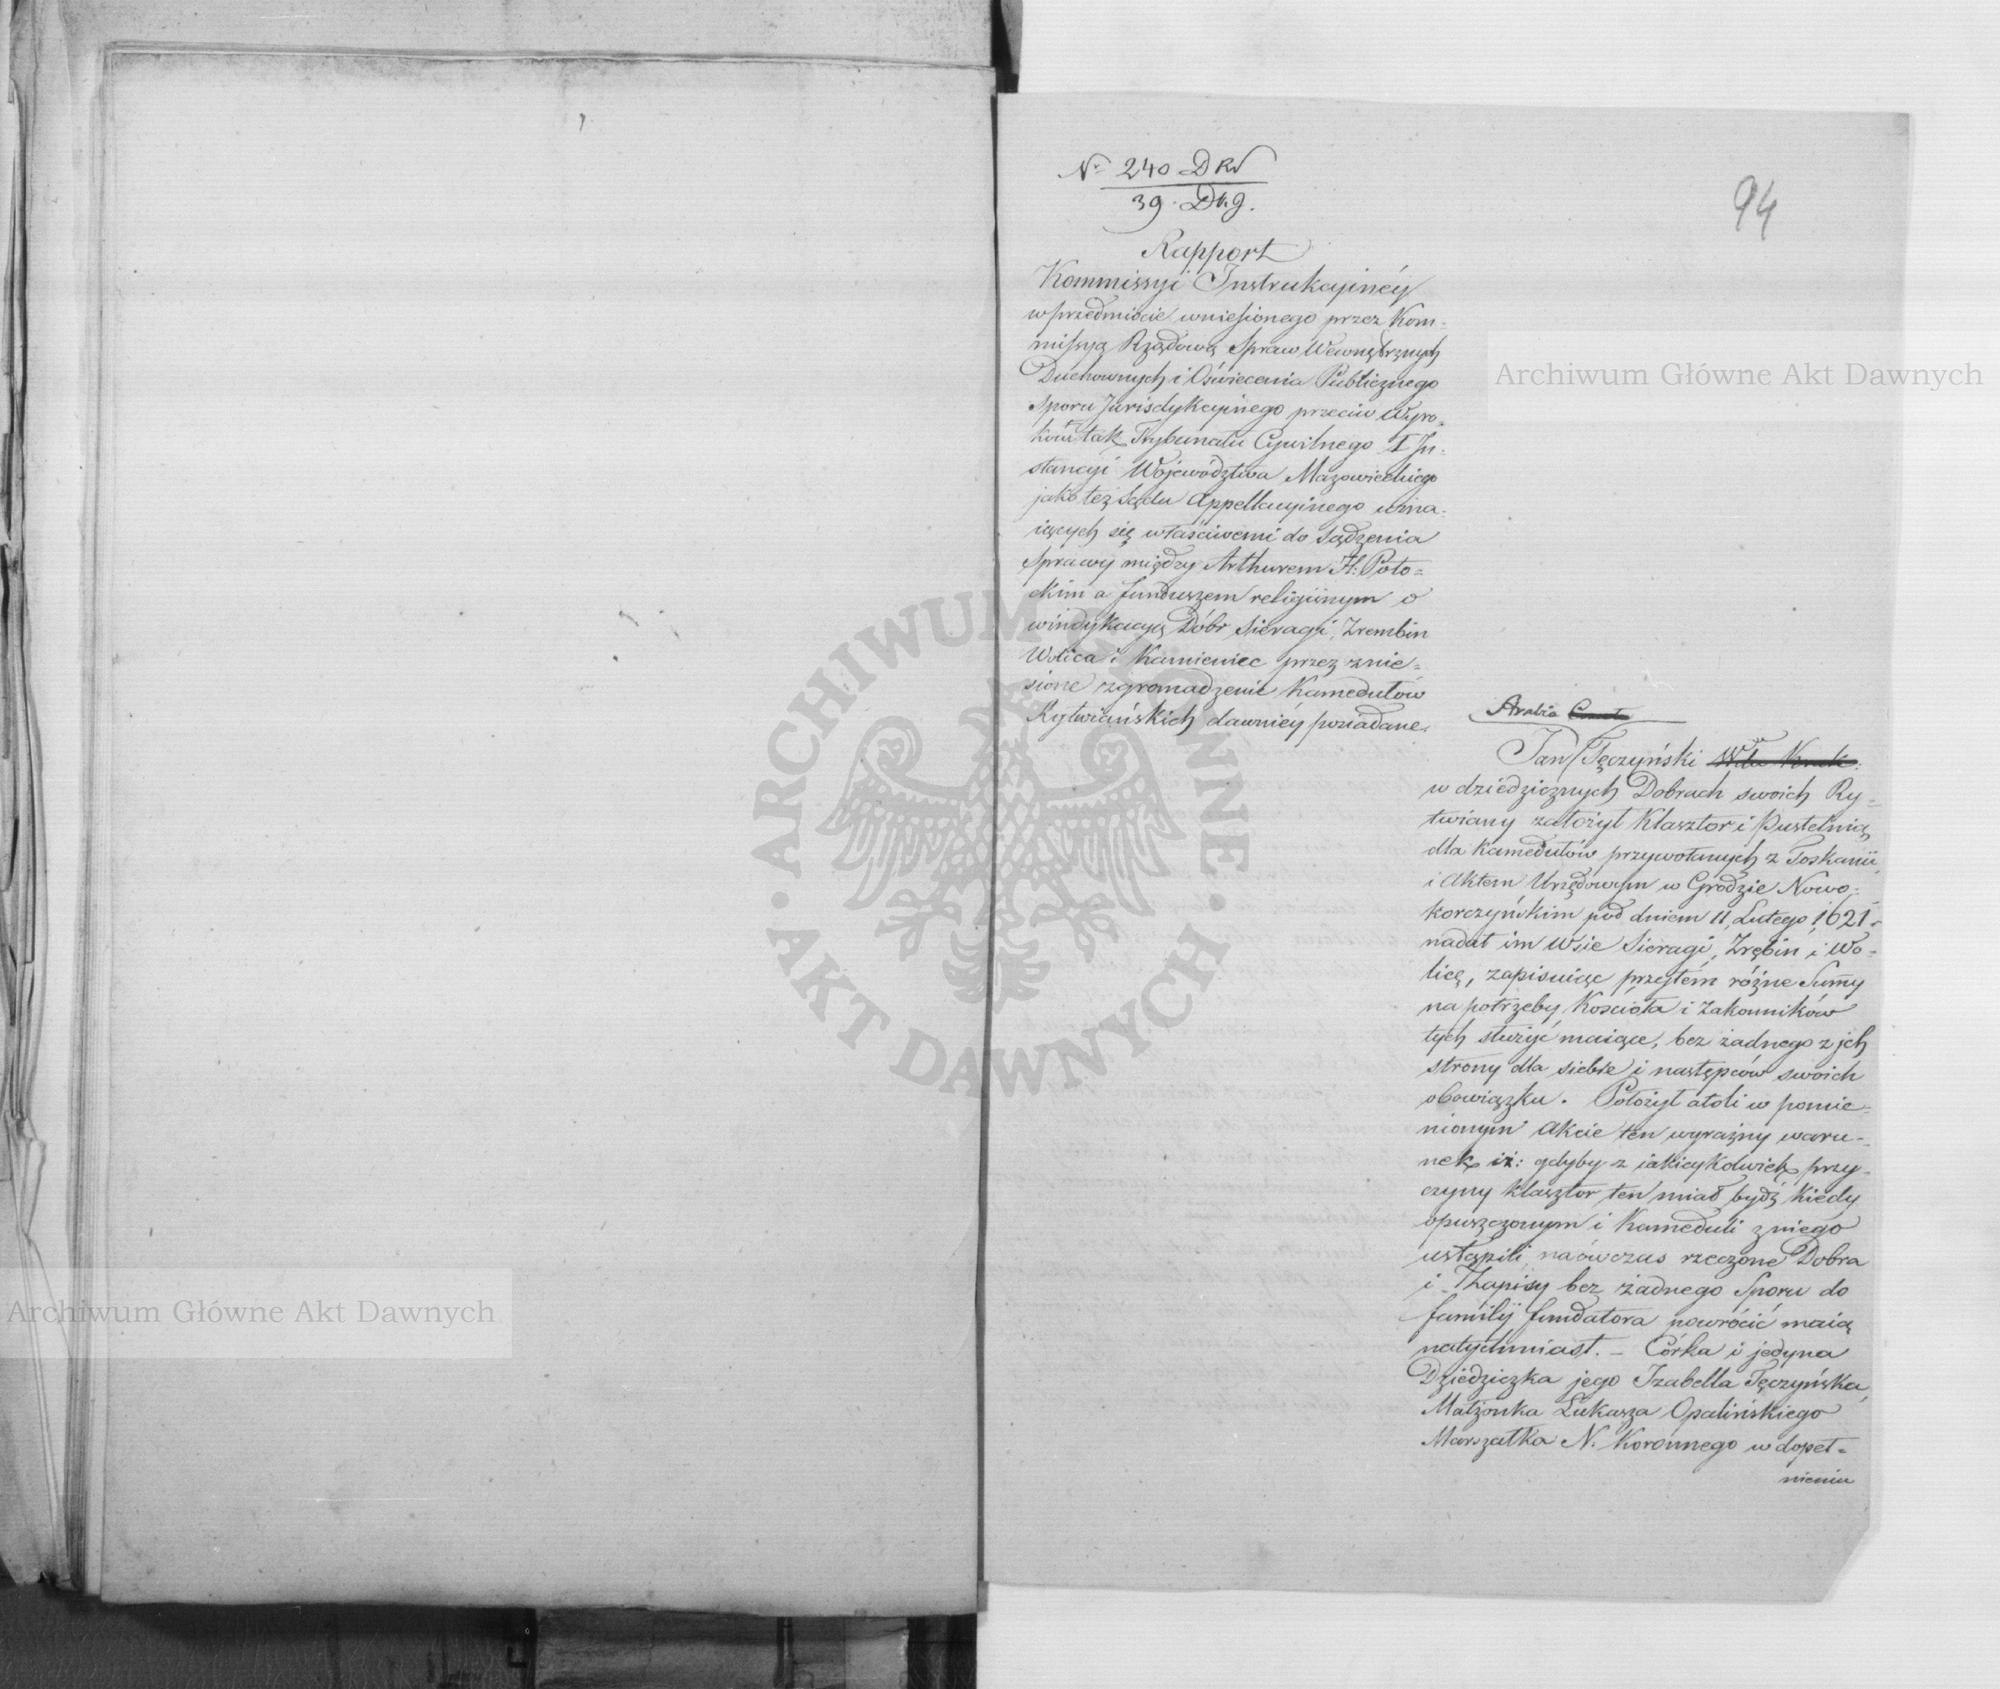 94
Nr 240 DRd
39. Dkg.
Rapport
Kommissyi Instrukcyinéy
w przedmiocie wniesionego przez Kom-
missyą Rządową Spraw Wewnętrznych
Duchownych i Oświecenia Publicznego
Sporu Jurisdykcyinego przeciw Wyro-
kom tak Trybunału Cywilnego I In-
stancyi Województwa Mazowieckiego
jako też Sądu Appellacyinego uzna-
iących się właściwemi do Sądzenia
Sprawy między Arthurem H: Poto-
ckim a funduszem religiinym o
windykacyą Dóbr Sieragi, Zrembin
Wolica i Kamieniec przez znie-
sione zgromadzenie Kamedułów
Rytwiańskich dawniéy posiadane.
Jan Tęczyński
w dziedzicznych Dobrach swoich Ry-
twiany założył Klasztor i Pustelnią
dla Kamedułów przywołanych z Toskanii
i Aktem Urzędowym w Grodzie Nowo-
korczyńskim pod dniem 11 Lutego 1621 r
nadał im Wsie Sieragi, Zrębin i Wo-
licę, zapisuiąc przytém różne Summy
na potrzeby Kościoła i Zakonników
tych służyć maiące, bez żadnego z jch
strony dla siebie i następców swoich
obowiązku. Położył atoli w pomie-
nionym Akcie ten wyraźny waru-
nek iż: gdyby z iakieykolwiek przy-
czyny klasztor ten miał bydź kiedy
opuszczonym i Kameduli z niego
ustąpili, naówczas rzeczone Dobra
i Zapisy bez żadnego Sporu do
familij fundatora powrócić maią
natychmiast. – Córka i jedyna
Dziedziczka jego Izabella Tęczyńska,
Małżonka Łukasza Opalińskiego
Marszałka N. Koronnego w dopeł-
nieniu
Archiwum Główne Akt Dawnych
Archiwum Główne Akt Dawnych
ARCHIWUM GŁÓWNE AKT DAWNYCH